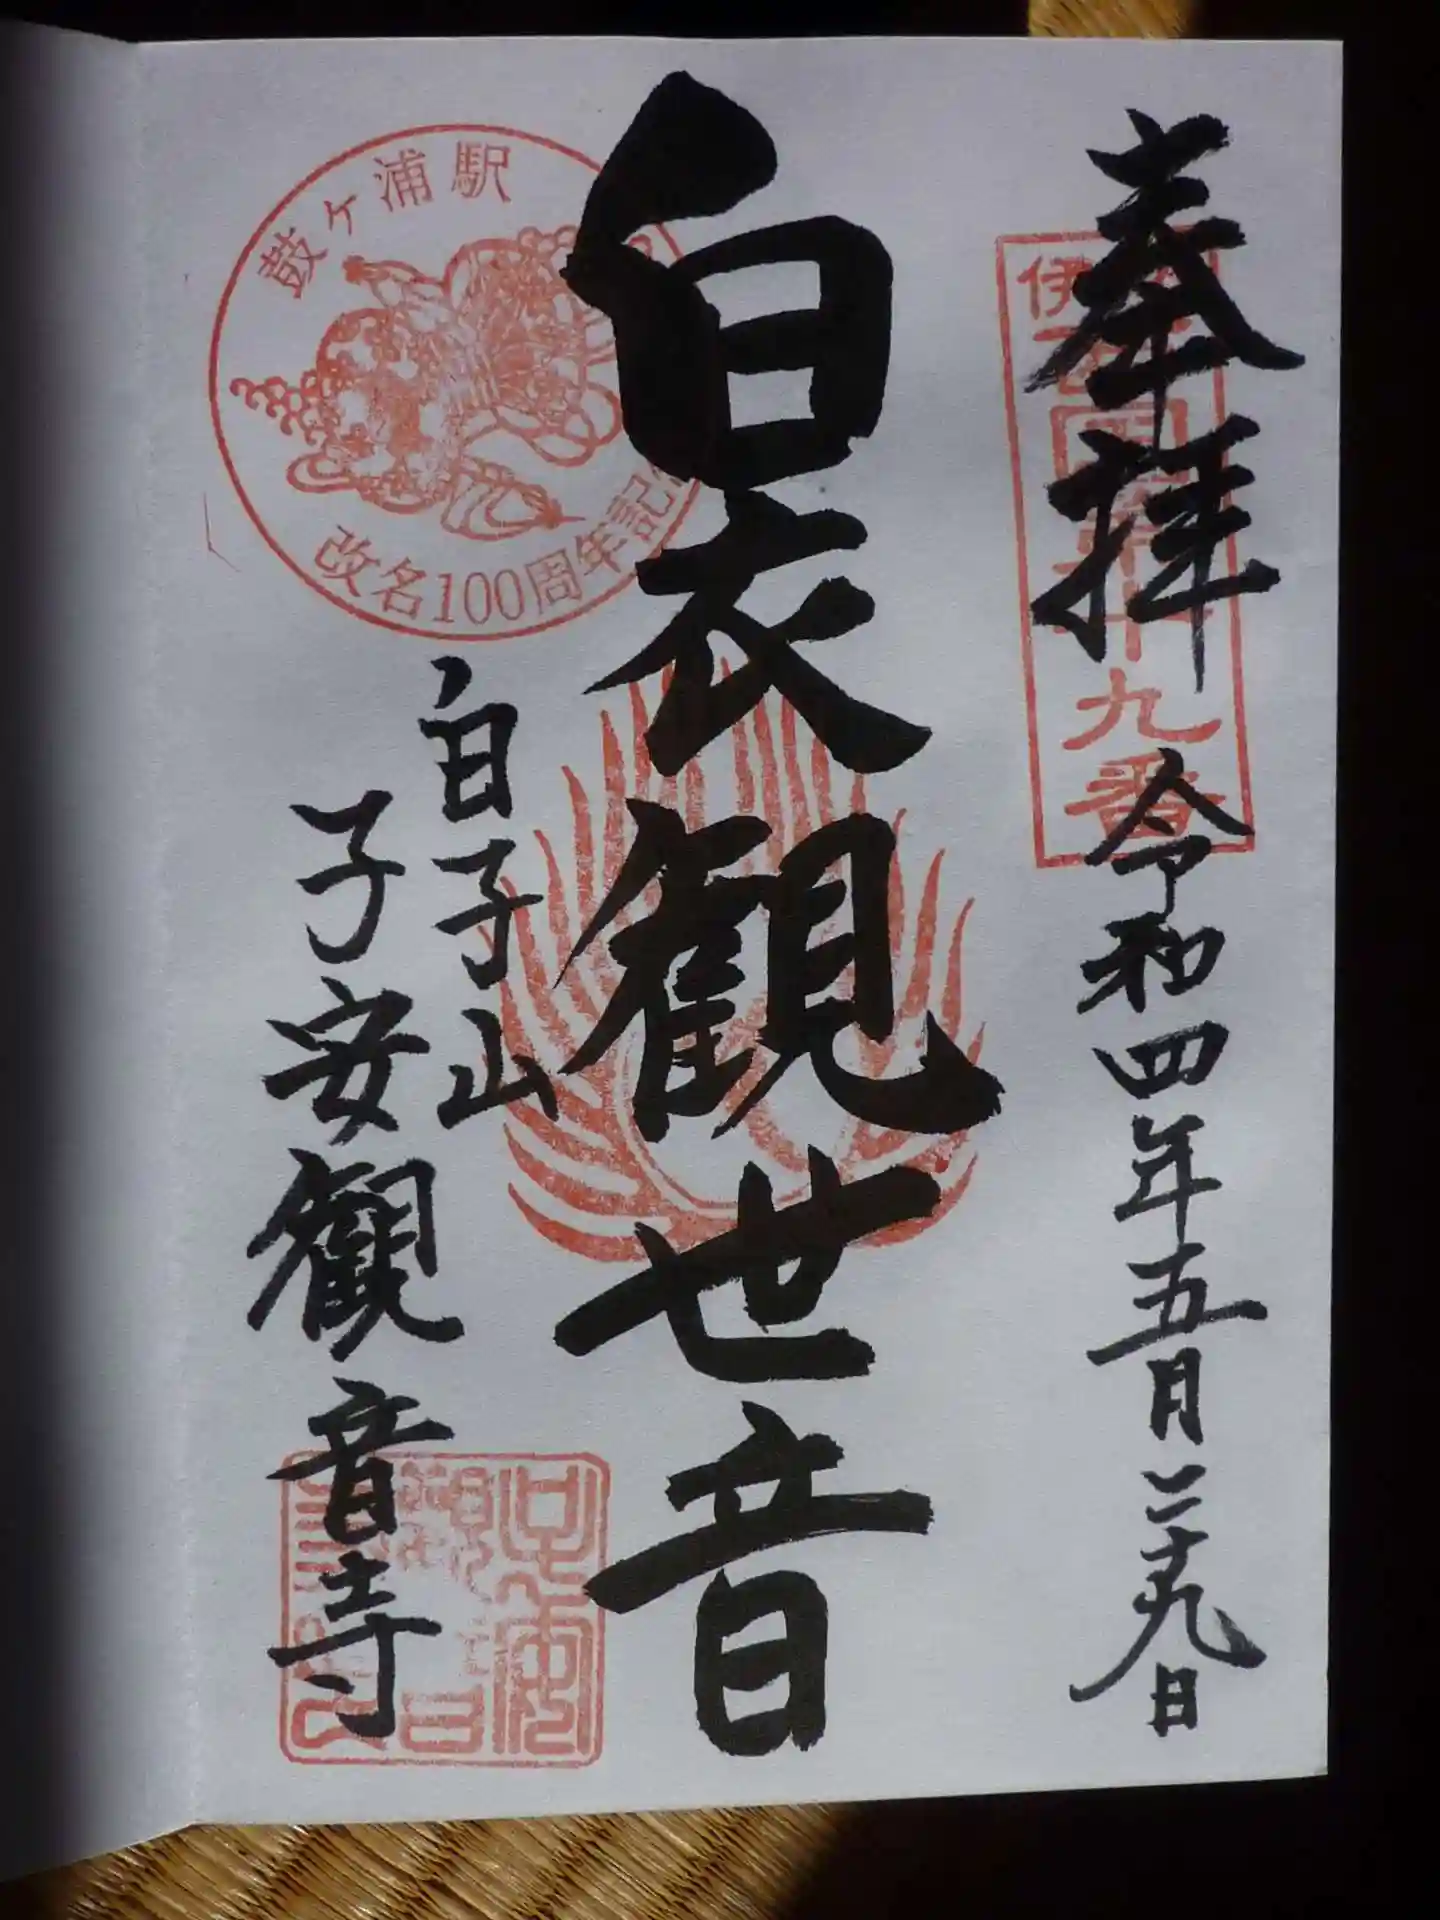 奉拝
令和四年五月二十九日
九番
白衣観世音
白子山
子安観音寺
鼓ヶ浦駅
改名100周年記